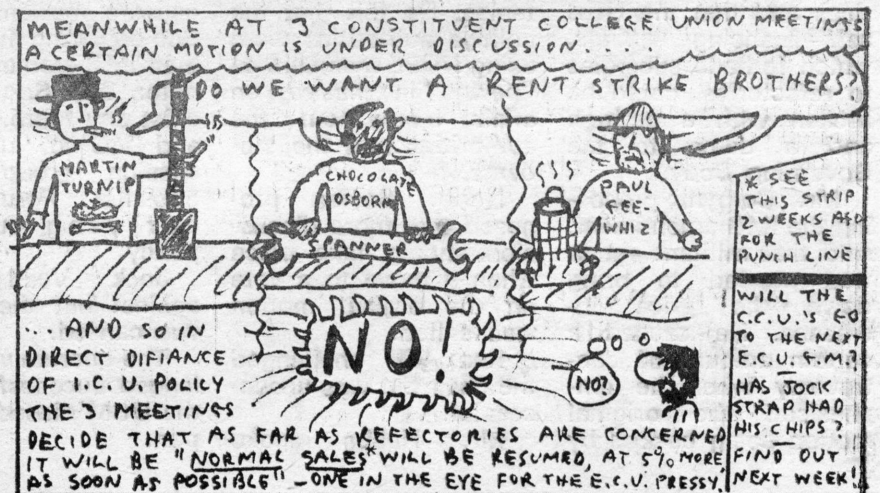 MEANWHILE AT 3 CONSTITUENT COLLEGE UNION MEETINGS
A CERTAIN MOTION IS UNDER DISCUSSION.....
DO WE WANT A RENT STRIKE BROTHERS?
MARTIN
TURNIP
CHOCOLATE
OSBORNE
SPANNER
PAUL
GEE-
WHIZ
* SEE
THIS STRIP
2 WEEKS AGO
FOR THE
PUNCH LINE
NO!
NO!
...AND SO IN
DIRECT DIFIANCE
OF I.C.U. POLICY
THE 3 MEETINGS
DECIDE THAT AS FAR AS REFECTORIES ARE CONCERNED
IT WILL BE "NORMAL SALES* WILL BE RESUMED, AT 5% MORE
AS SOON AS POSSIBLE" - ONE IN THE EYE FOR THE E.C.U. PRESSY.
WILL THE
C.C.U.'S GO
TO THE NEXT
E.C.U.G.M.?
HAS JOCK
STRAP HAD
HIS CHIPS?
FIND OUT
NEXT WEEK!